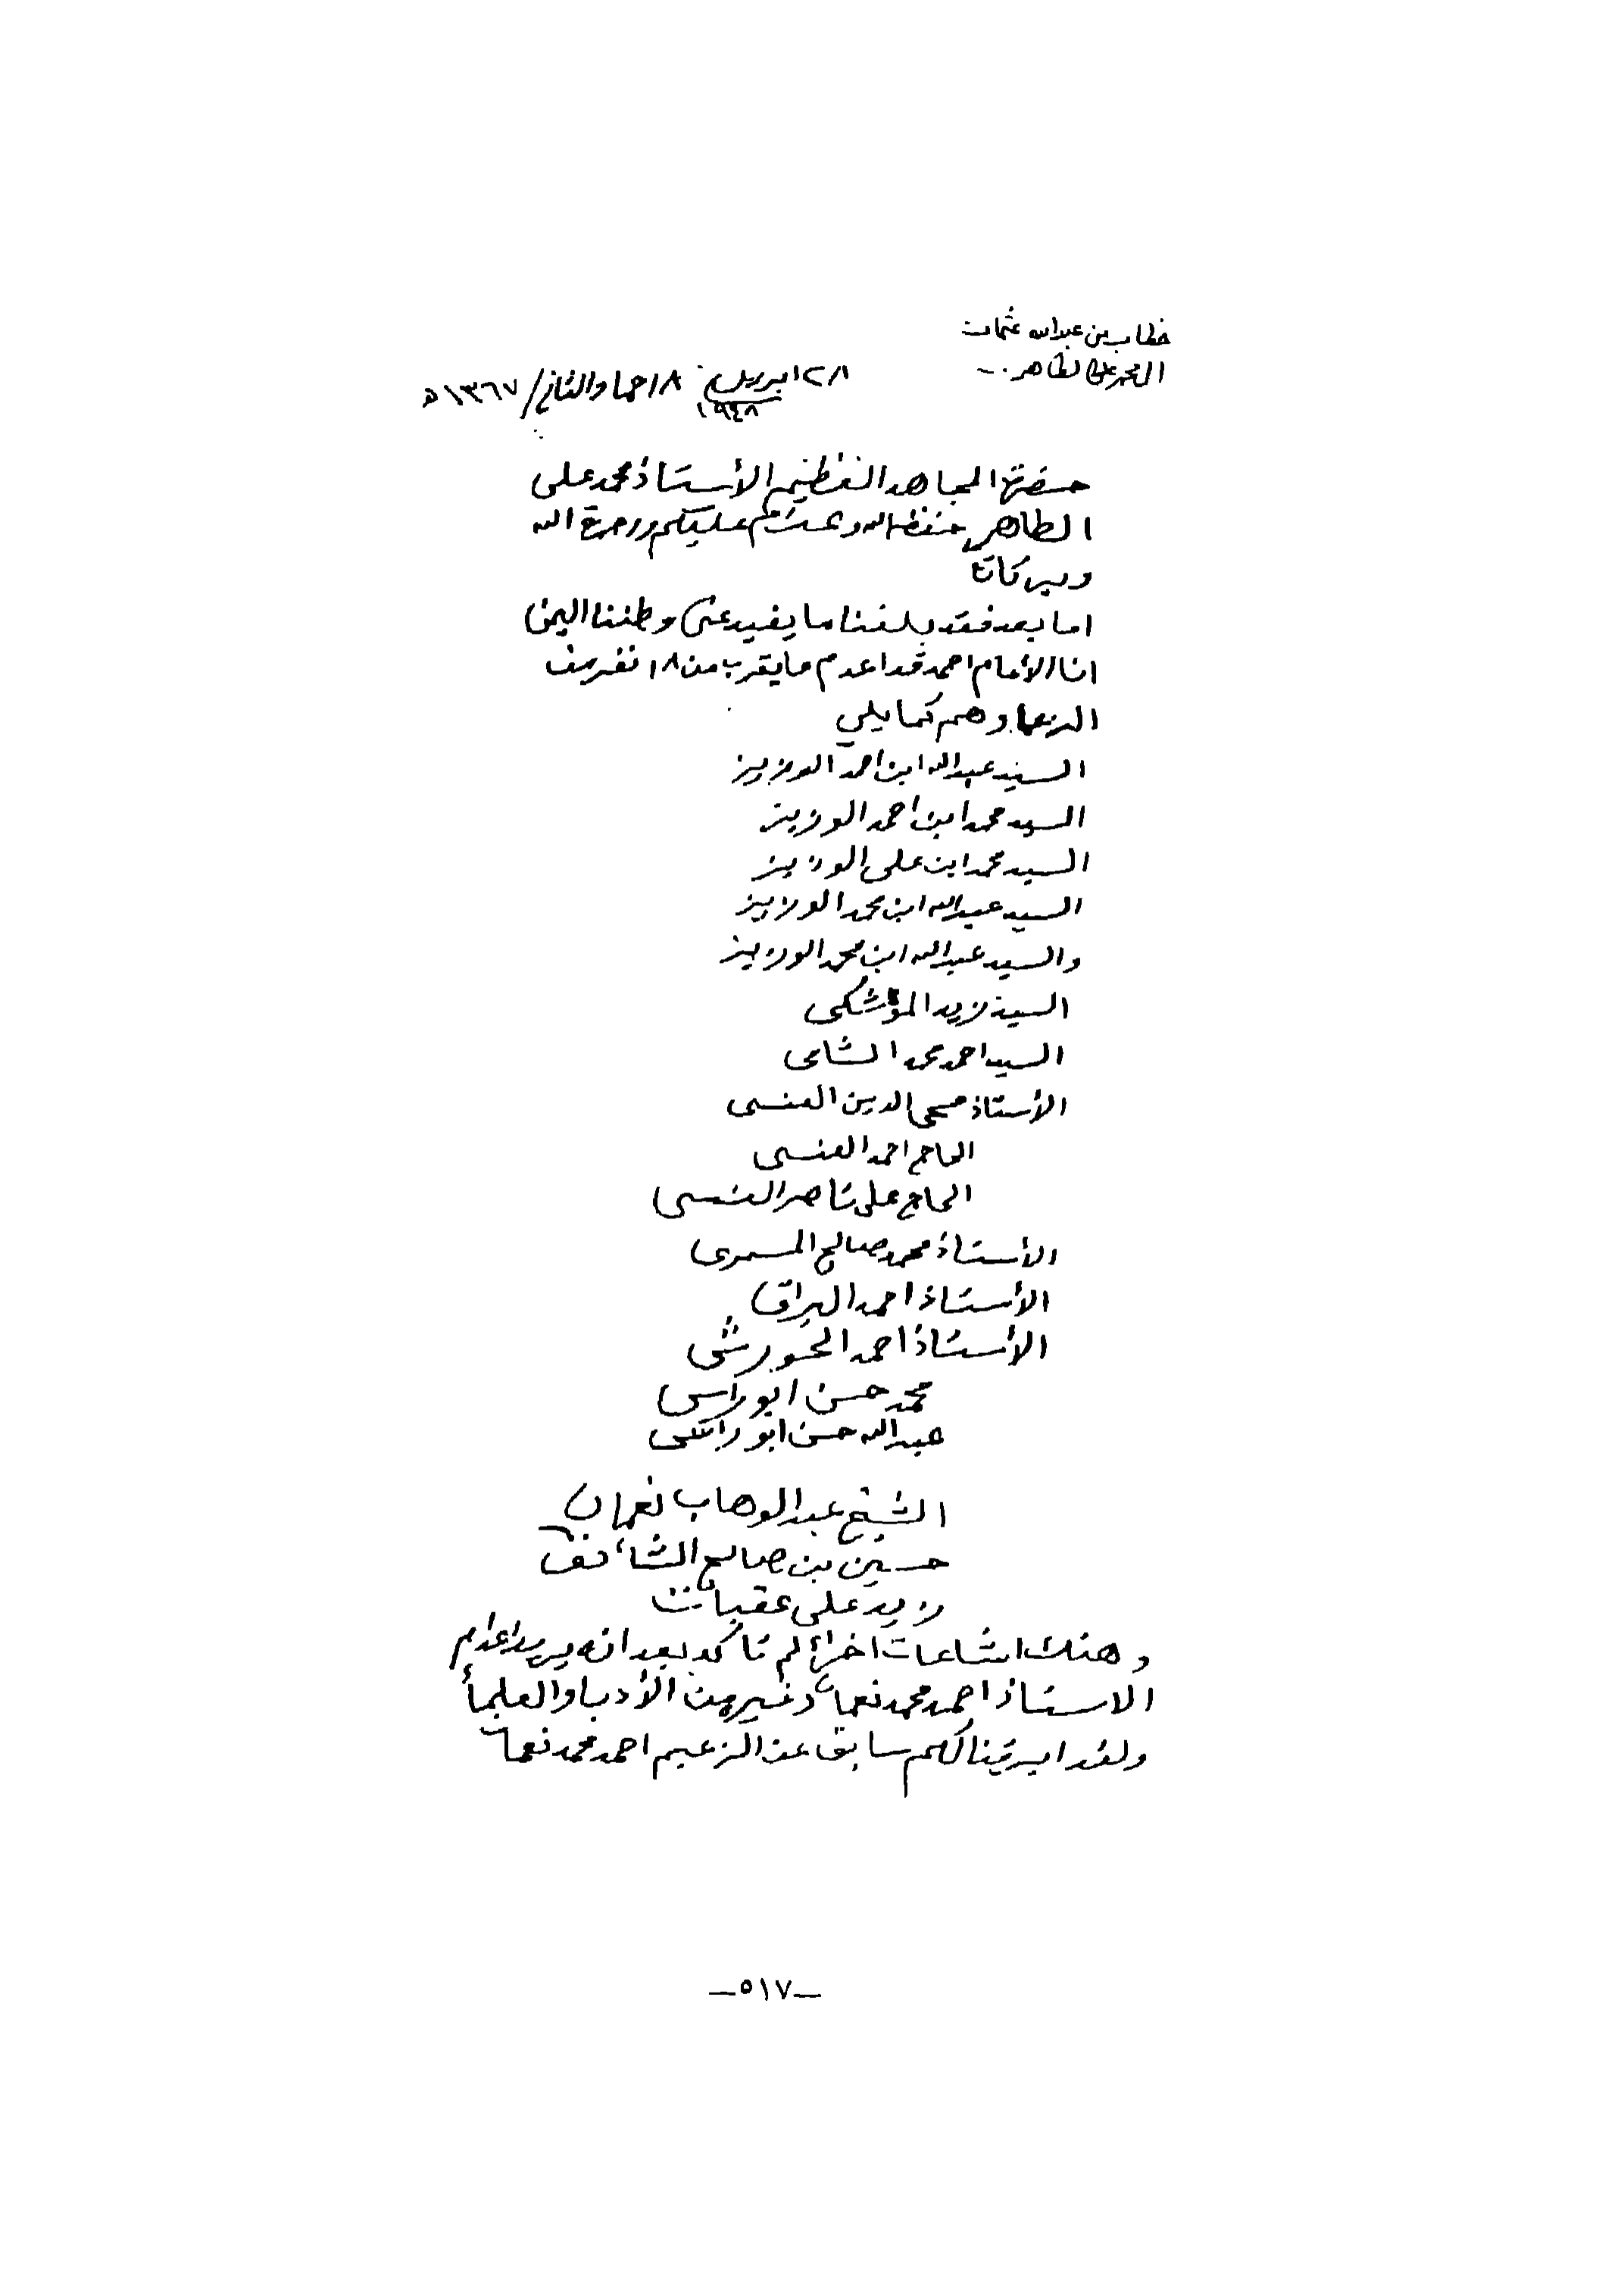 خطاب من عبدالله عثمان
الى محمد على الطاهر
٢٨ ابريل ١٩٤٨ ١٨ جماد الثاني / ١٣٦٧ ه
حضرة المجاهد العظيم الأستاذ محمد على
الطاهر حفظه الله و عليكم ورحمة الله
وبركاته
اما بعد فقد بلغنا ما يفيد عن وطننا اليمن
ان الأمام احمد قد اعدم ما يقرب من ١٨ نفر من
الزعما وهم كما يلي
السيد عبدالله ابن احمد الوزيز
السيد محمد ابن احمد الوزيز
السيد محمد ابن على الوزيز
السيد عبدالله ابن محمد الوزيز
والسيد عبدالله ابن محمد الوزيز
السيد زيد الموشكى
السيد احمد محمد الشامى
الأستاذ محى الدين العنسى
الحاج احمد العنسى
الحاج على ناصر العنسى
الأستاذ محمد صالح المسمرى
الأستاذ احمد البراق
الأستاذ احمد الحورشى
محمد حسن ابو راس
عبدالله حسن ابو راس
الشيخ عبدالوهاب نعمان
حسين بن صالح الشائف
زيد على عقبات
وهنك اشاعات اخرئ لم تأكد بعد انه يريد اعدام
الاستاذ احمد محمد نعمان وغيره من الأدبا والعلمأ
ولقد ابرقنا لكم سابق عن الزعيم احمد محمد نعمان
—٥١٧—